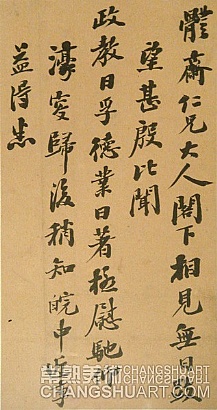 體齋仁兄大人閣下相見無日
望甚殷比聞
政教日孚德業日著極慰馳
濠叟歸後稍知皖中事
益得悉
常熟美術 CHANGSHUART
CHANGSHUART.COM